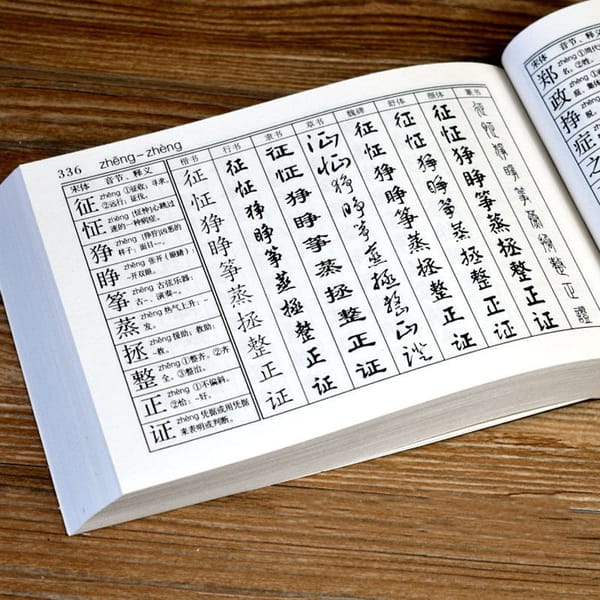 336 zhēng–zhèng
宋体 音节、释义 楷书 行书 隶书 草书 魏碑 舒体 颜体 篆书
征 zhēng ①征收;寻求。 征 征 征 征 征 征 征 征
②远行;征伐。
怔 zhēng [怔忡]心跳过 怔 怔 怔 怔 怔 怔 怔 怔
速的一种病症。
狰 zhēng [狰狞]凶恶的 狰 狰 狰 狰 狰 狰 狰 狰
样子:面目~。
睁 zhēng 张开(眼睛): 睁 睁 睁 睁 睁 睁 睁 睁
~开双眼。
筝 zhēng 古弦乐器: 筝 筝 筝 筝 筝 筝 筝 筝
古~,演奏~。
蒸 zhēng 热气上升:~ 蒸 蒸 蒸 蒸 蒸 蒸 蒸 蒸
发。
拯 zhěng 援助;救助: 拯 拯 拯 拯 拯 拯 拯 拯
~救。
整 zhěng ①整齐。②齐 整 整 整 整 整 整 整 整
全。③整治。
正 zhèng ①不偏斜。 正 正 正 正 正 正 正 正
②恰:~好。
证 zhèng 凭据或用凭据 证 证 证 证 证 证 证 證
来表明或判断。
宋体 音节、释义
郑 zhèng ①周代
名。②姓。
政 zhèng
挣 zhèng
脱。
症 zhèng
之